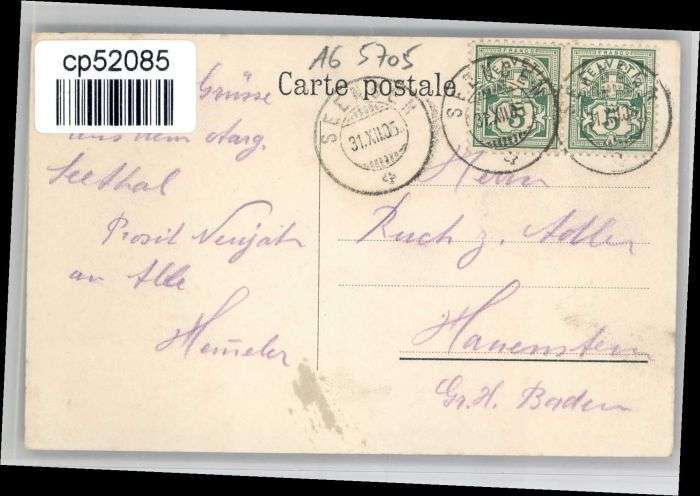 cp52085
AG 5705
Carte postale.
FRANCO FRANCO
HELVETIA
5 5
31.XII.05
Grüsse
aus dem Aarg.
Seethal
Prosit Neujahr
an Alle
Herrn
Ruch z. Adler
Hauenstein
Gr. H. Baden